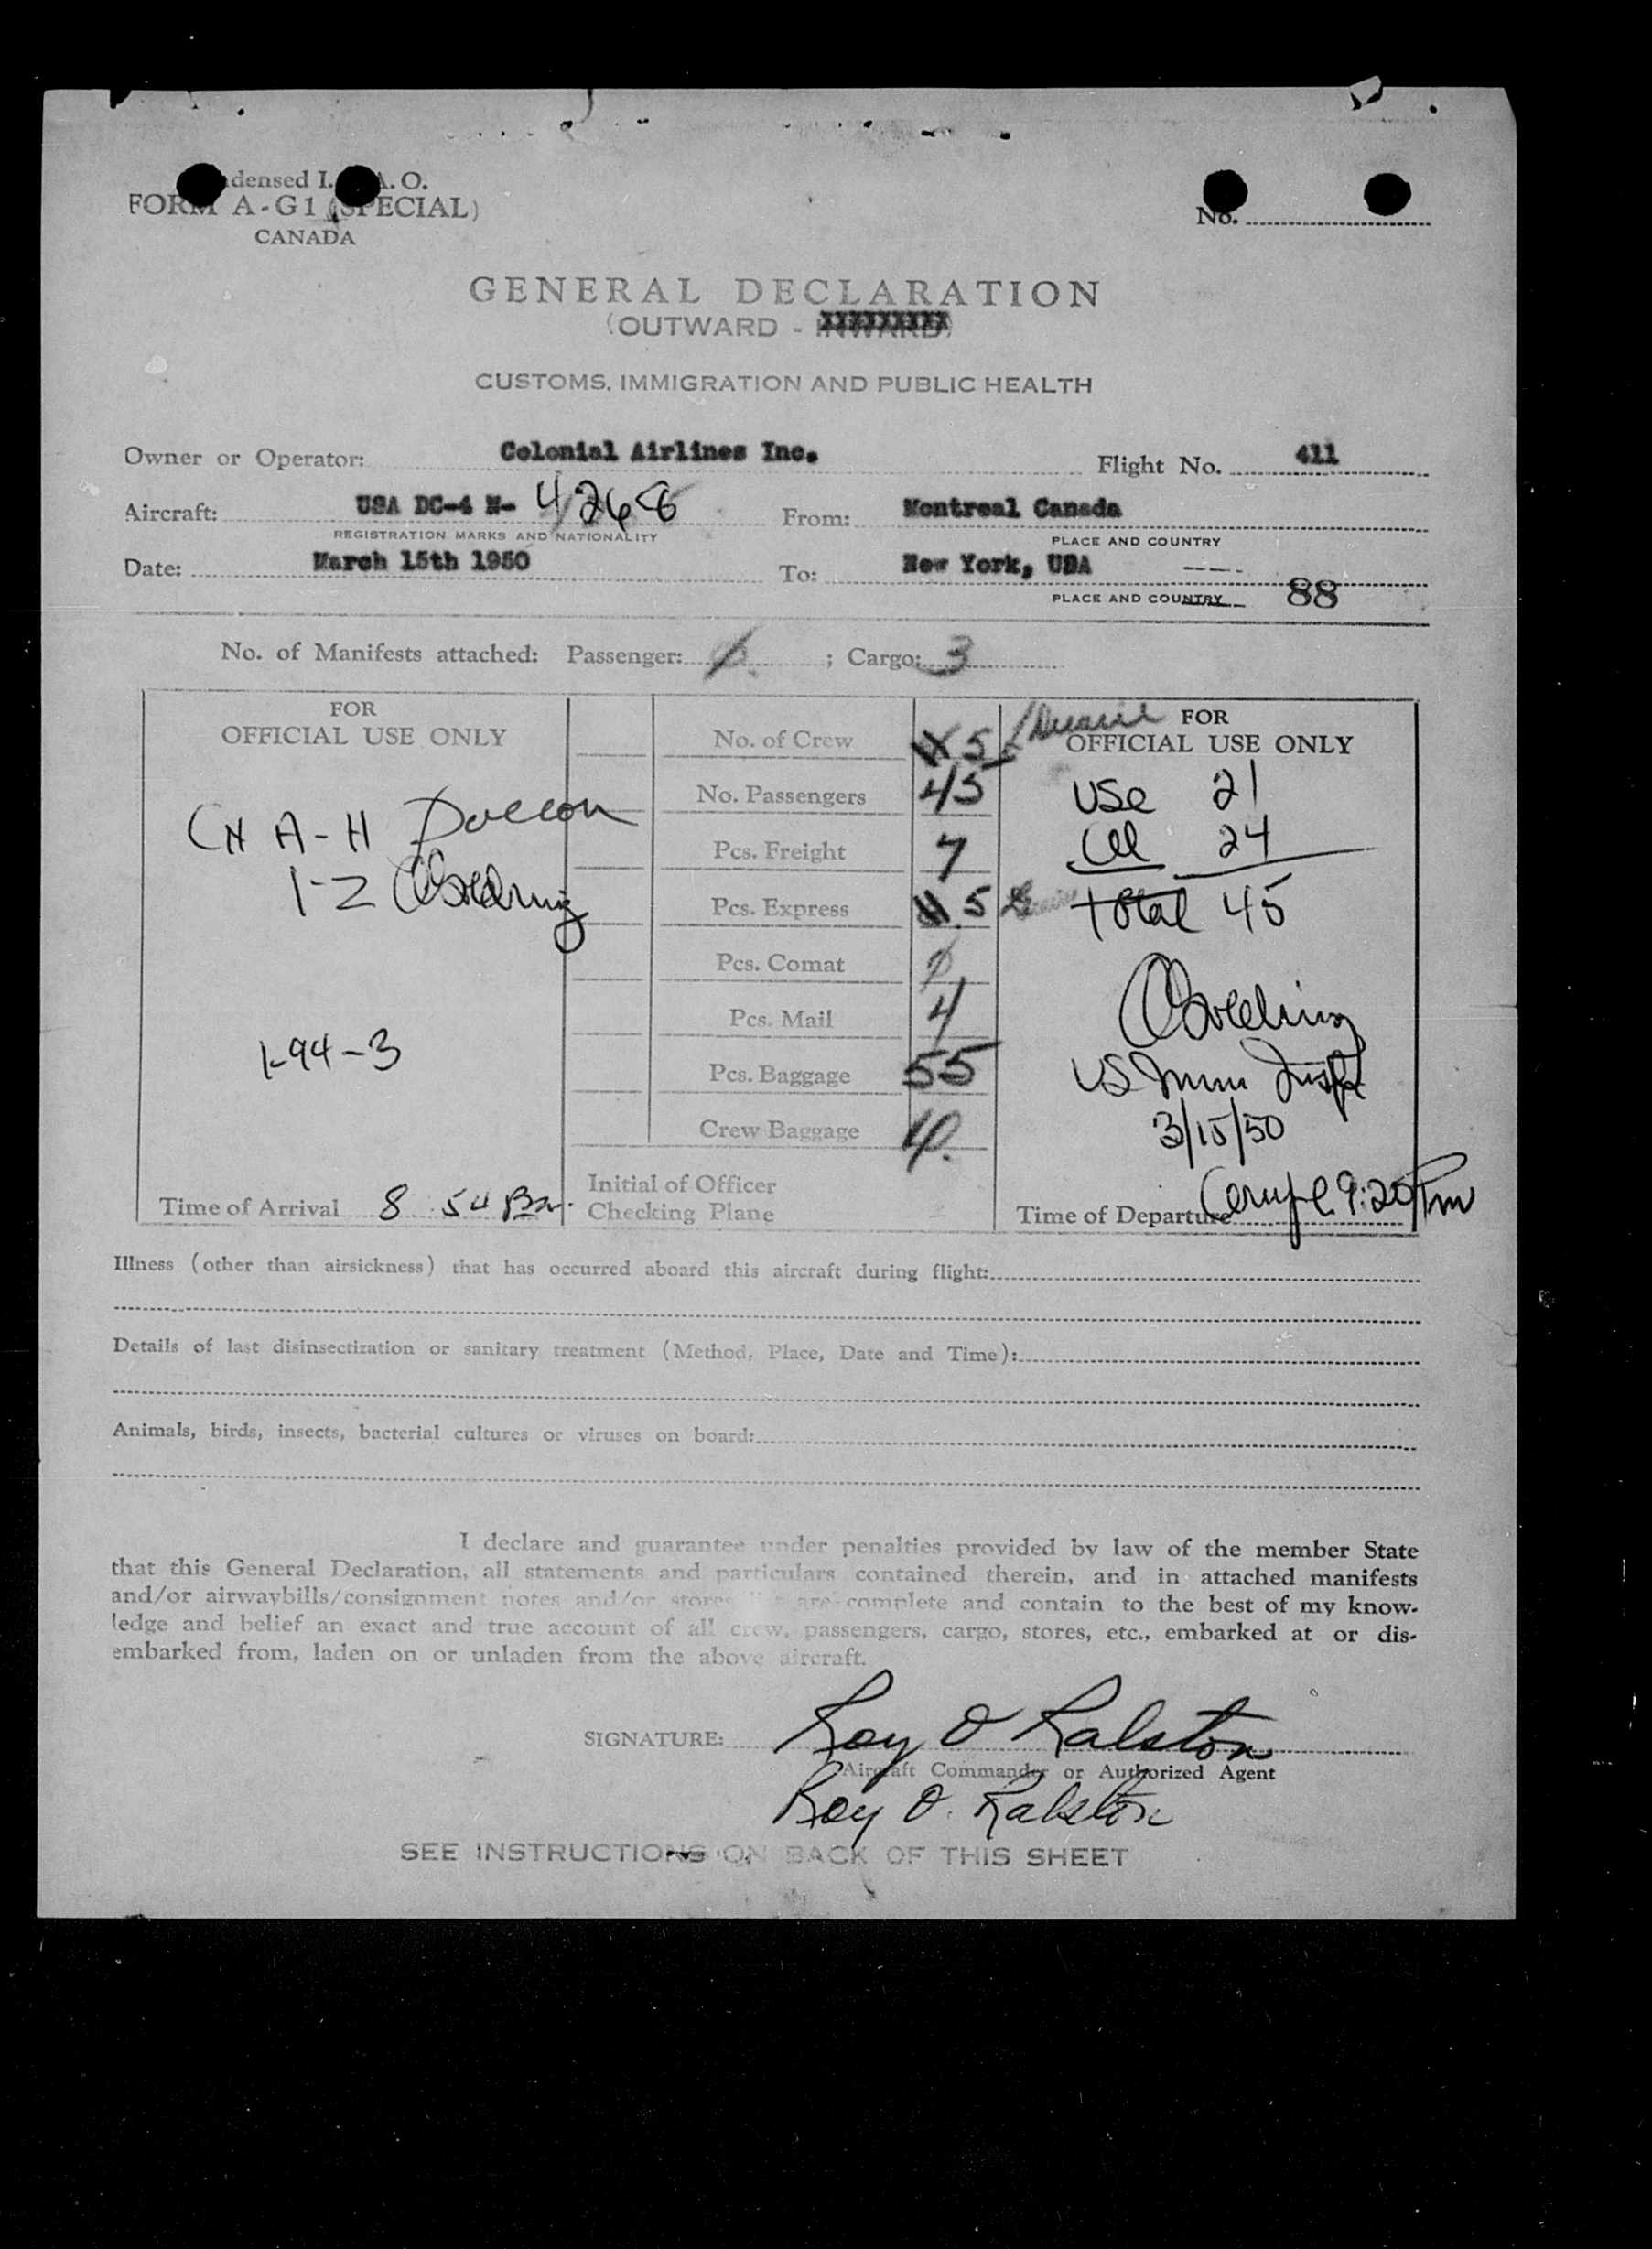 densed I. A. O.
FORM A-G1 (SPECIAL)
CANADA
No.
GENERAL DECLARATION
(OUTWARD - INWARD)
CUSTOMS, IMMIGRATION AND PUBLIC HEALTH
Owner or Operator: Colonial Airlines Inc. Flight No. 411
Aircraft: USA DC-4 N- 4268 From: Montreal Canada
REGISTRATION MARKS AND NATIONALITY PLACE AND COUNTRY
Date: March 15th 1950 To: New York, USA
PLACE AND COUNTRY 88
No. of Manifests attached: Passenger: ∅ ; Cargo: 3
FOR
OFFICIAL USE ONLY
A-H
1-Z
1-94-3
Time of Arrival 8 54
No. of Crew 5
No. Passengers 45
Pcs. Freight 7
Pcs. Express 5
Pcs. Comat ∅
Pcs. Mail 4
Pcs. Baggage 55
Crew Baggage 4
Initial of Officer
Checking Plane
FOR
OFFICIAL USE ONLY
USC 21
24
total 45
US Imm Insp
3/15/50
Time of Departure 9:20 Pm
Illness (other than airsickness) that has occurred aboard this aircraft during flight:
Details of last disinsectization or sanitary treatment (Method, Place, Date and Time):
Animals, birds, insects, bacterial cultures or viruses on board:
I declare and guarantee under penalties provided by law of the member State
that this General Declaration, all statements and particulars contained therein, and in attached manifests
and/or airwaybills/consignment notes and/or stores list are complete and contain to the best of my know-
ledge and belief an exact and true account of all crew, passengers, cargo, stores, etc., embarked at or dis-
embarked from, laden on or unladen from the above aircraft.
SIGNATURE: Roy O Ralston
Aircraft Commander or Authorized Agent
Roy O. Ralston
SEE INSTRUCTIONS ON BACK OF THIS SHEET